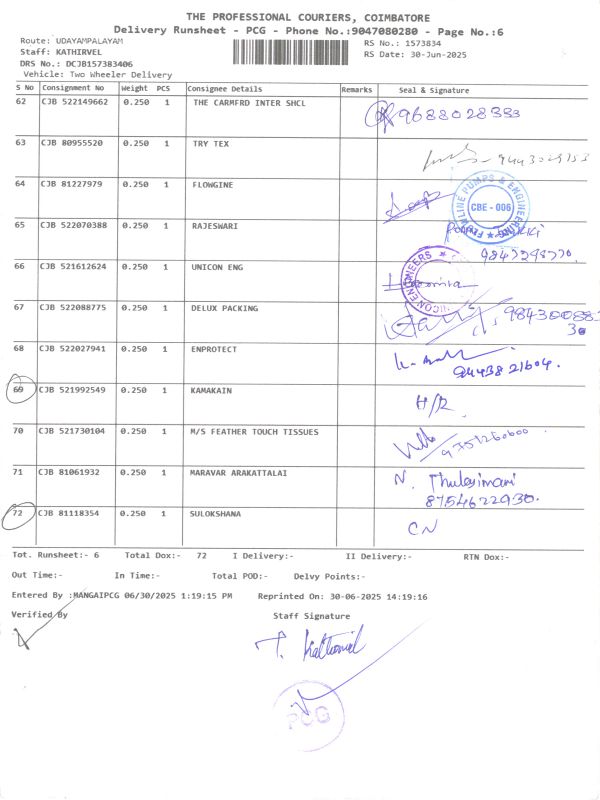 THE PROFESSIONAL COURIERS, COIMBATORE
Delivery Runsheet - PCG - Phone No.:9047080280 - Page No.:6
Route: UDAYAMPALAYAM RS No.: 1573834
Staff: KATHIRVEL RS Date: 30-Jun-2025
DRS No.: DCJB157383406
Vehicle: Two Wheeler Delivery
S No Consignment No Weight PCS Consignee Details Remarks Seal & Signature
62 CJB 522149662 0.250 1 THE CARMFRD INTER SHCL 9688028333
63 CJB 80955520 0.250 1 TRY TEX
64 CJB 81227979 0.250 1 FLOWGINE
FLOWLINE PUMPS & ENGINEERING
CBE - 006
65 CJB 522070388 0.250 1 RAJESWARI
66 CJB 521612624 0.250 1 UNICON ENG
UNICON ENGINEERS
67 CJB 522088775 0.250 1 DELUX PACKING
68 CJB 522027941 0.250 1 ENPROTECT
9443821604.
69 CJB 521992549 0.250 1 KAMAKAIN
H/R
70 CJB 521730104 0.250 1 M/S FEATHER TOUCH TISSUES
9751260600
71 CJB 81061932 0.250 1 MARAVAR ARAKATTALAI N. Thulasimani
8754622930.
72 CJB 81118354 0.250 1 SULOKSHANA
CN
Tot. Runsheet:- 6 Total Dox:- 72 I Delivery:- II Delivery:- RTN Dox:-
Out Time:- In Time:- Total POD:- Delvy Points:-
Entered By :MANGAIPCG 06/30/2025 1:19:15 PM Reprinted On: 30-06-2025 14:19:16
Verified By Staff Signature
PCG